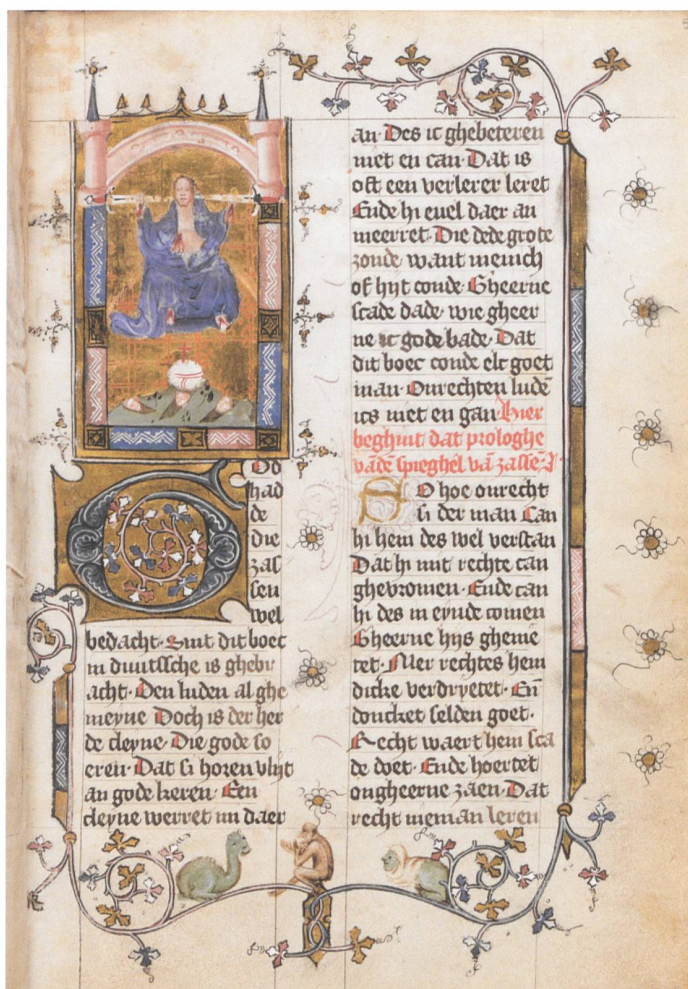 God
had
de
die
zas
sen
wel
bedacht· Sint dit boec
in duutssche is ghebr
acht· Den luden al ghe
meyne Doch is der her
de cleyne· Die gode so
eren· Dat si horen vlijt
an gode keren· Een
cleyne werret mi daer
an· Des ic ghebeteren
niet en can· Dat is
oft een verkerer leret
Ende hi euel daer an
meerret· Die dede grote
zonde want menich
of hijt conde· Gheerne
scade dade· wie gheer
ne ic gode bade· Dat
dit boec conde elc goet
man· Onrechten ludē
ics niet en gan· Hier
beghint dat prologhe
vādē spieghel vā zassē
SO hoe onrecht
si der man Can
hi hem des wel verstan
Dat hi mit rechte can
ghevromen· Ende can
hi des in eynde comen
Gheerne hijs ghenie
tet· Mer rechtes hem
dicke verdryetet· Eñ
doncket selden goet·
Recht waert hem sca
de doet· Ende hoertet
ongheerne zaen· Dat
recht nieman leren